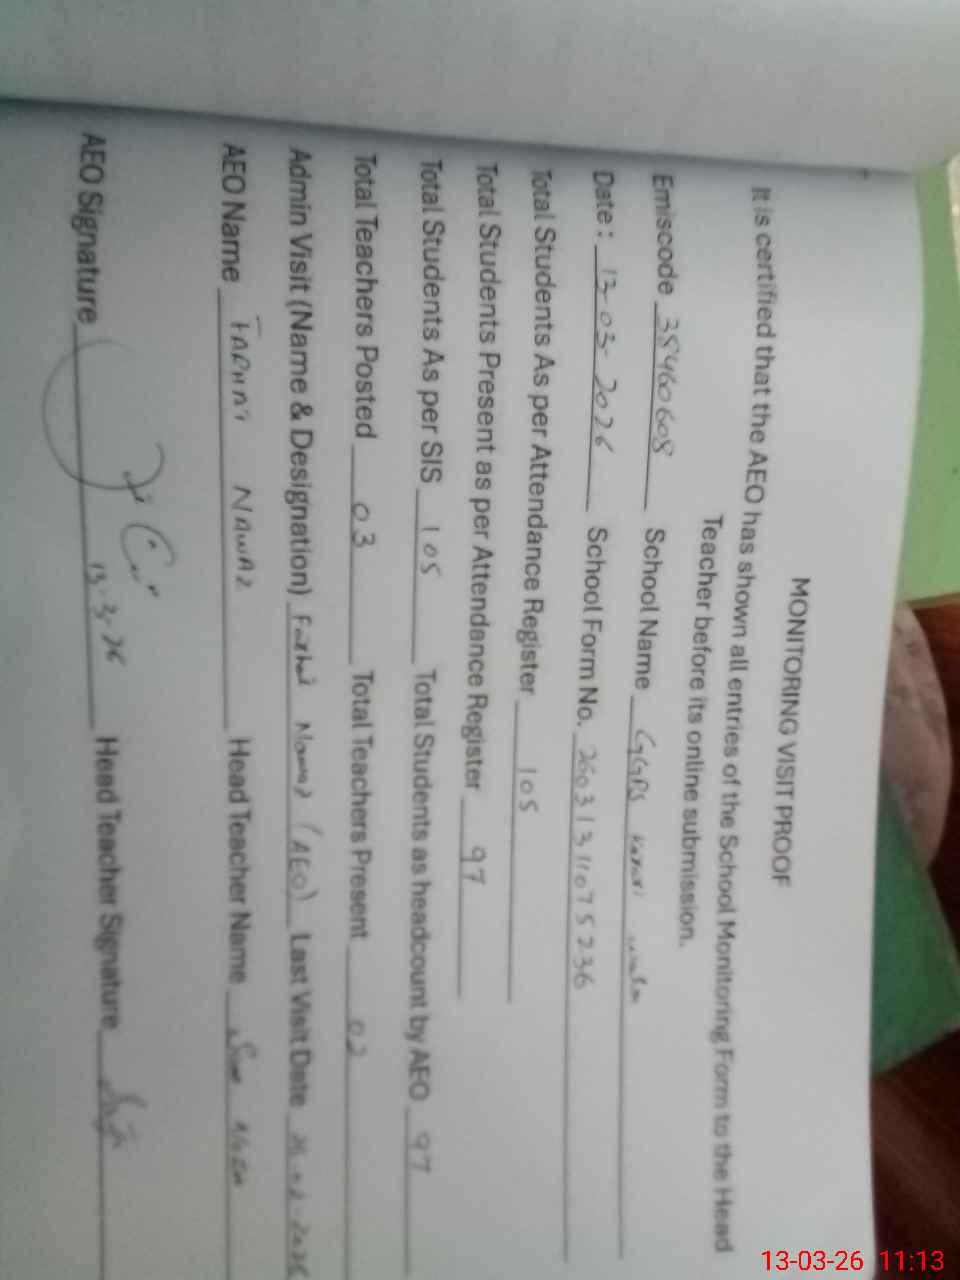 MONITORING VISIT PROOF
It is certified that the AEO has shown all entries of the School Monitoring Form to the Head
Teacher before its online submission.
Emiscode 35460608 School Name GGPS
Date: 13-03-2026 School Form No. 26031311075236
Total Students As per Attendance Register 105
Total Students Present as per Attendance Register 97
Total Students As per SIS 105 Total Students as headcount by AEO 97
Total Teachers Posted 03 Total Teachers Present 02
Admin Visit (Name & Designation) Farhat Nawaz (AEO) Last Visit Date
AEO Name FARHAT NAWAZ Head Teacher Name
AEO Signature 13-3-26 Head Teacher Signature
13-03-26 11:13